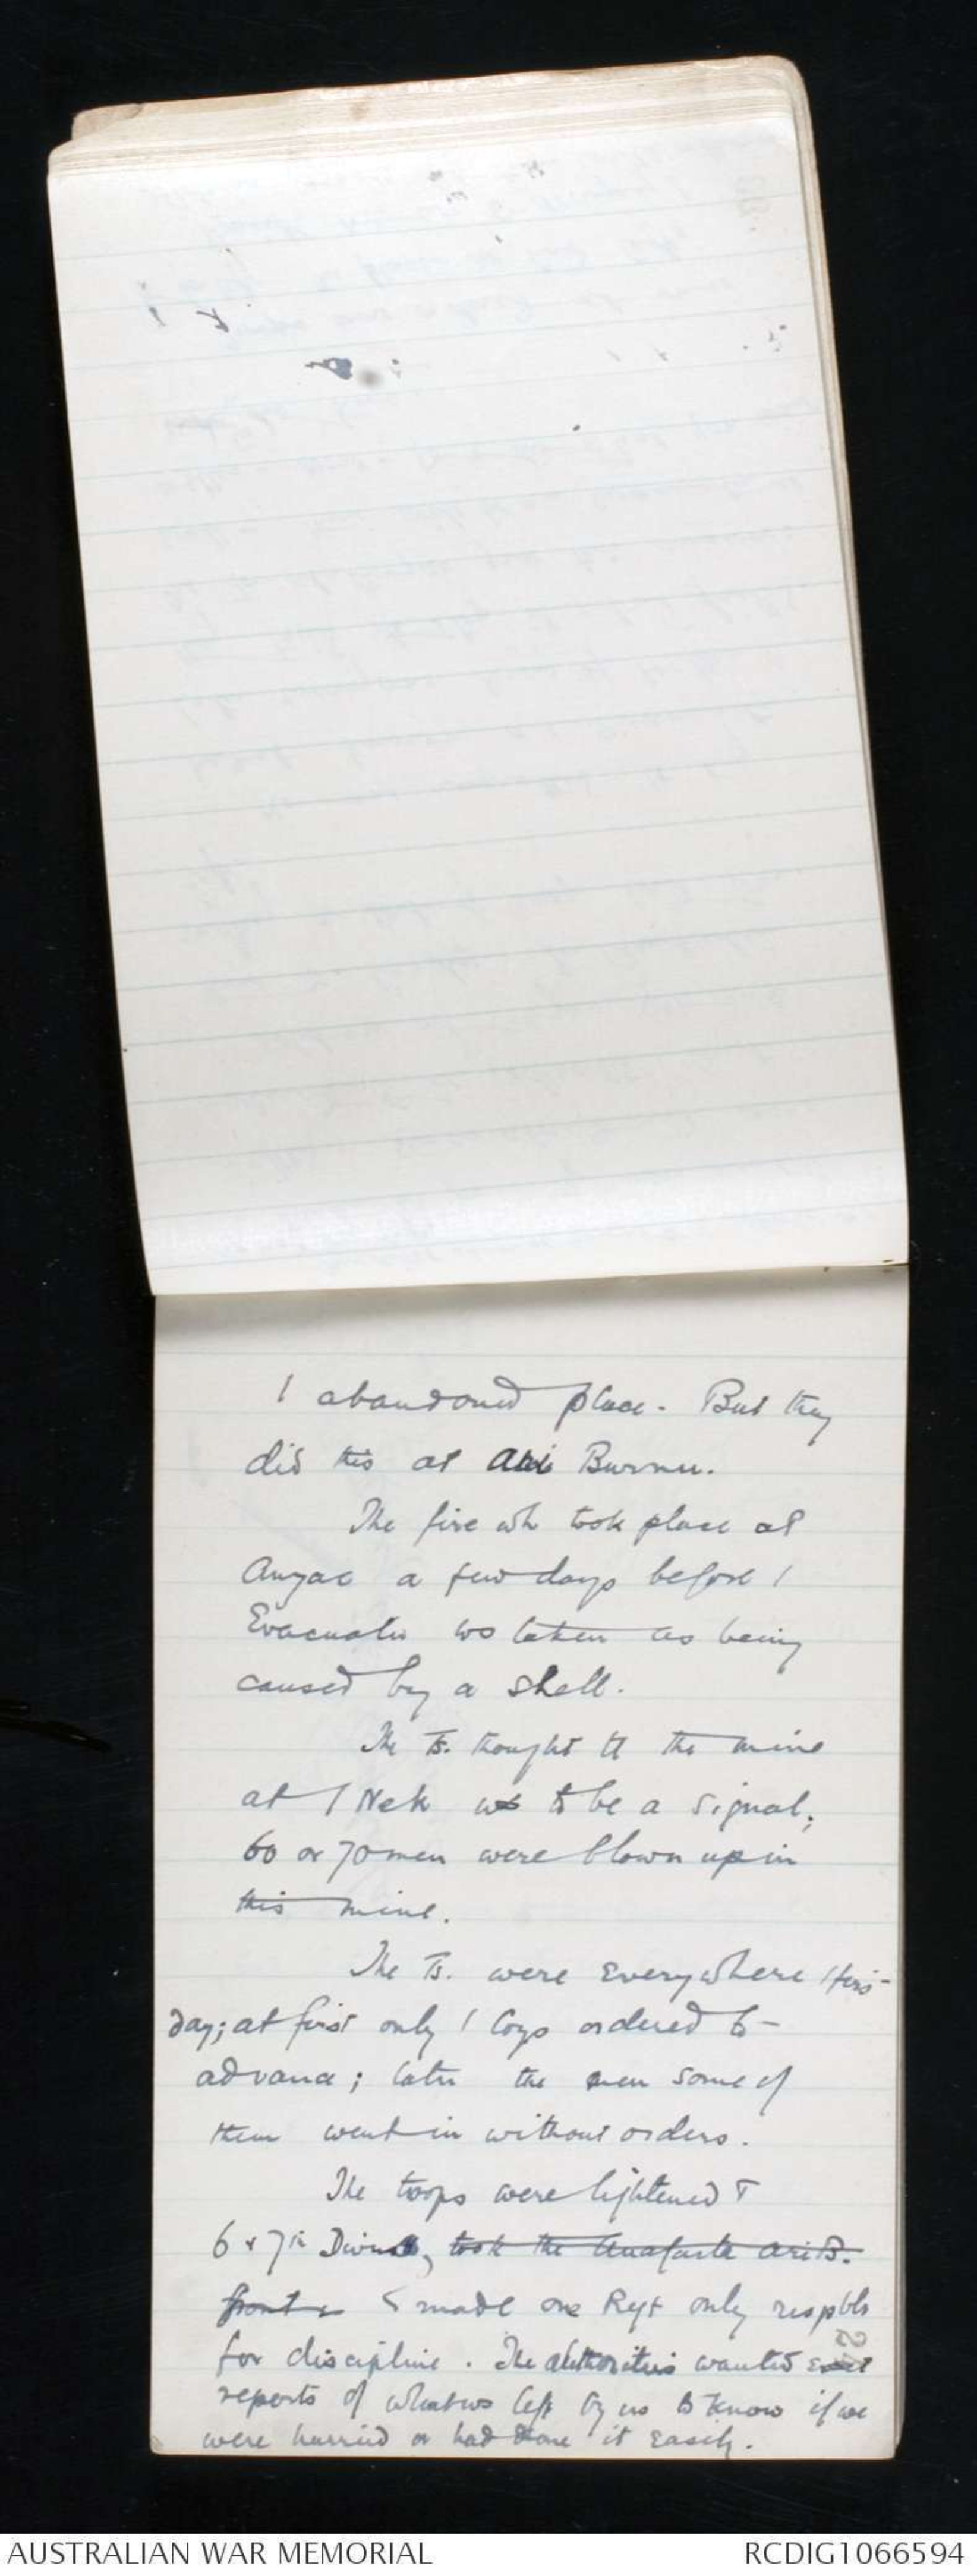 / abandoned place. But they
did this at Ari Burnu.
The fire wh took place at
Anzac a few days before /
Evacuatn ws taken as being
caused by a shell.
The Ts. thought tt the mine
at / Nek ws to be a signal;
60 or 70 men were blown up in
this mine.
The Ts. were everywhere / first
day; at first only / Coys ordered to
advance; later the men some of
them went in without orders.
The troops were lightened T
6 & 7th Divns, took the Anafarta Ari B.
front & made one Regt only respble
for discipline. The authorities wanted exact
reports of what ws left by us to know if we
were hurried or had done it easily.
AUSTRALIAN WAR MEMORIAL
RCDIG1066594